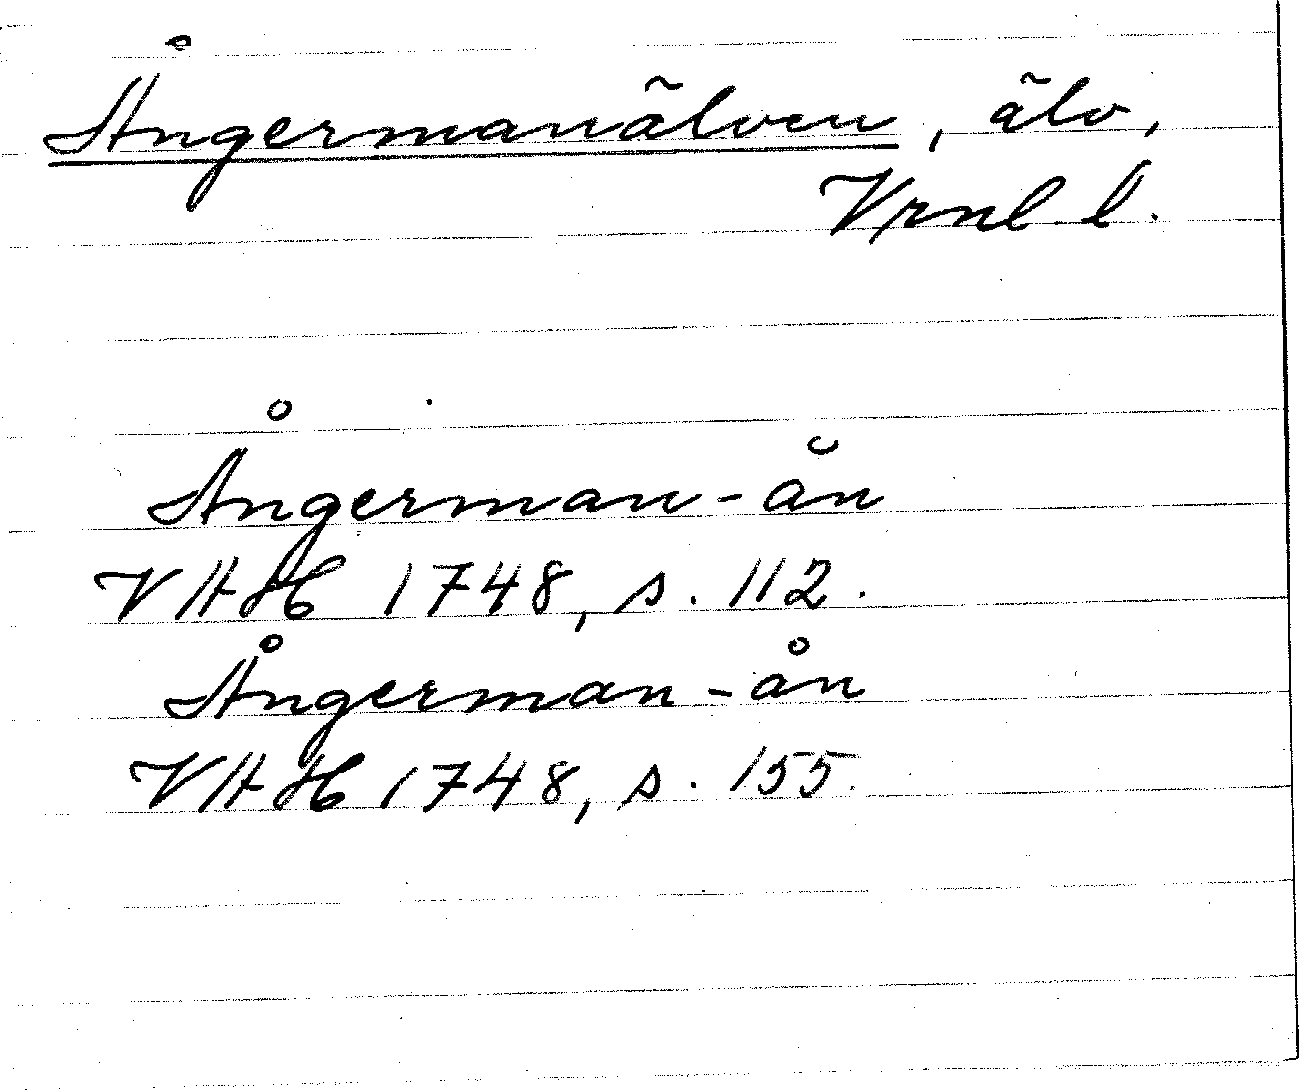 Ångermanälven, älv,
Vrnl l.
Ångerman-ån
VHH 1748, s. 112.
Ångerman-ån
VHH 1748, s. 155.